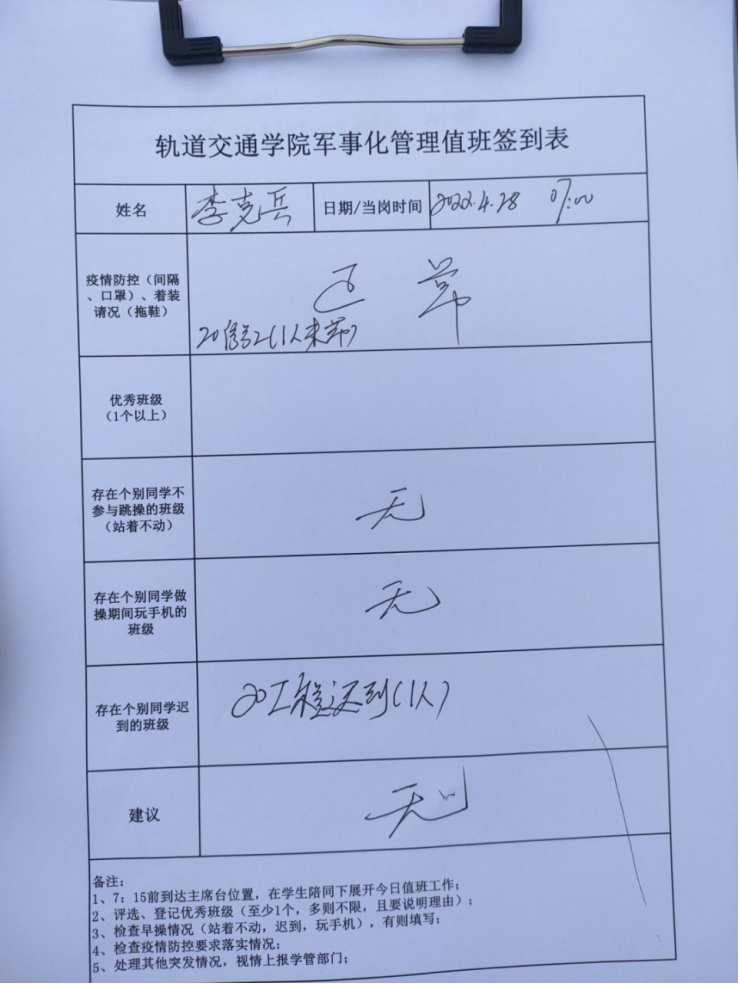 轨道交通学院军事化管理值班签到表
姓名
李克兵
日期/当岗时间
2022.4.28 07:00
疫情防控（间隔
、口罩）、着装
请况（拖鞋）
正常
20信号2(1人未带)
优秀班级
（1个以上）
存在个别同学不
参与跳操的班级
（站着不动）
无
存在个别同学做
操期间玩手机的
班级
无
存在个别同学迟
到的班级
20工程迟到(1人)
建议
无
备注：
1、7：15前到达主席台位置，在学生陪同下展开今日值班工作；
2、评选、登记优秀班级（至少1个，多则不限，且要说明理由）；
3、检查早操情况（站着不动，迟到，玩手机），有则填写；
4、检查疫情防控要求落实情况；
5、处理其他突发情况，视情上报学管部门；